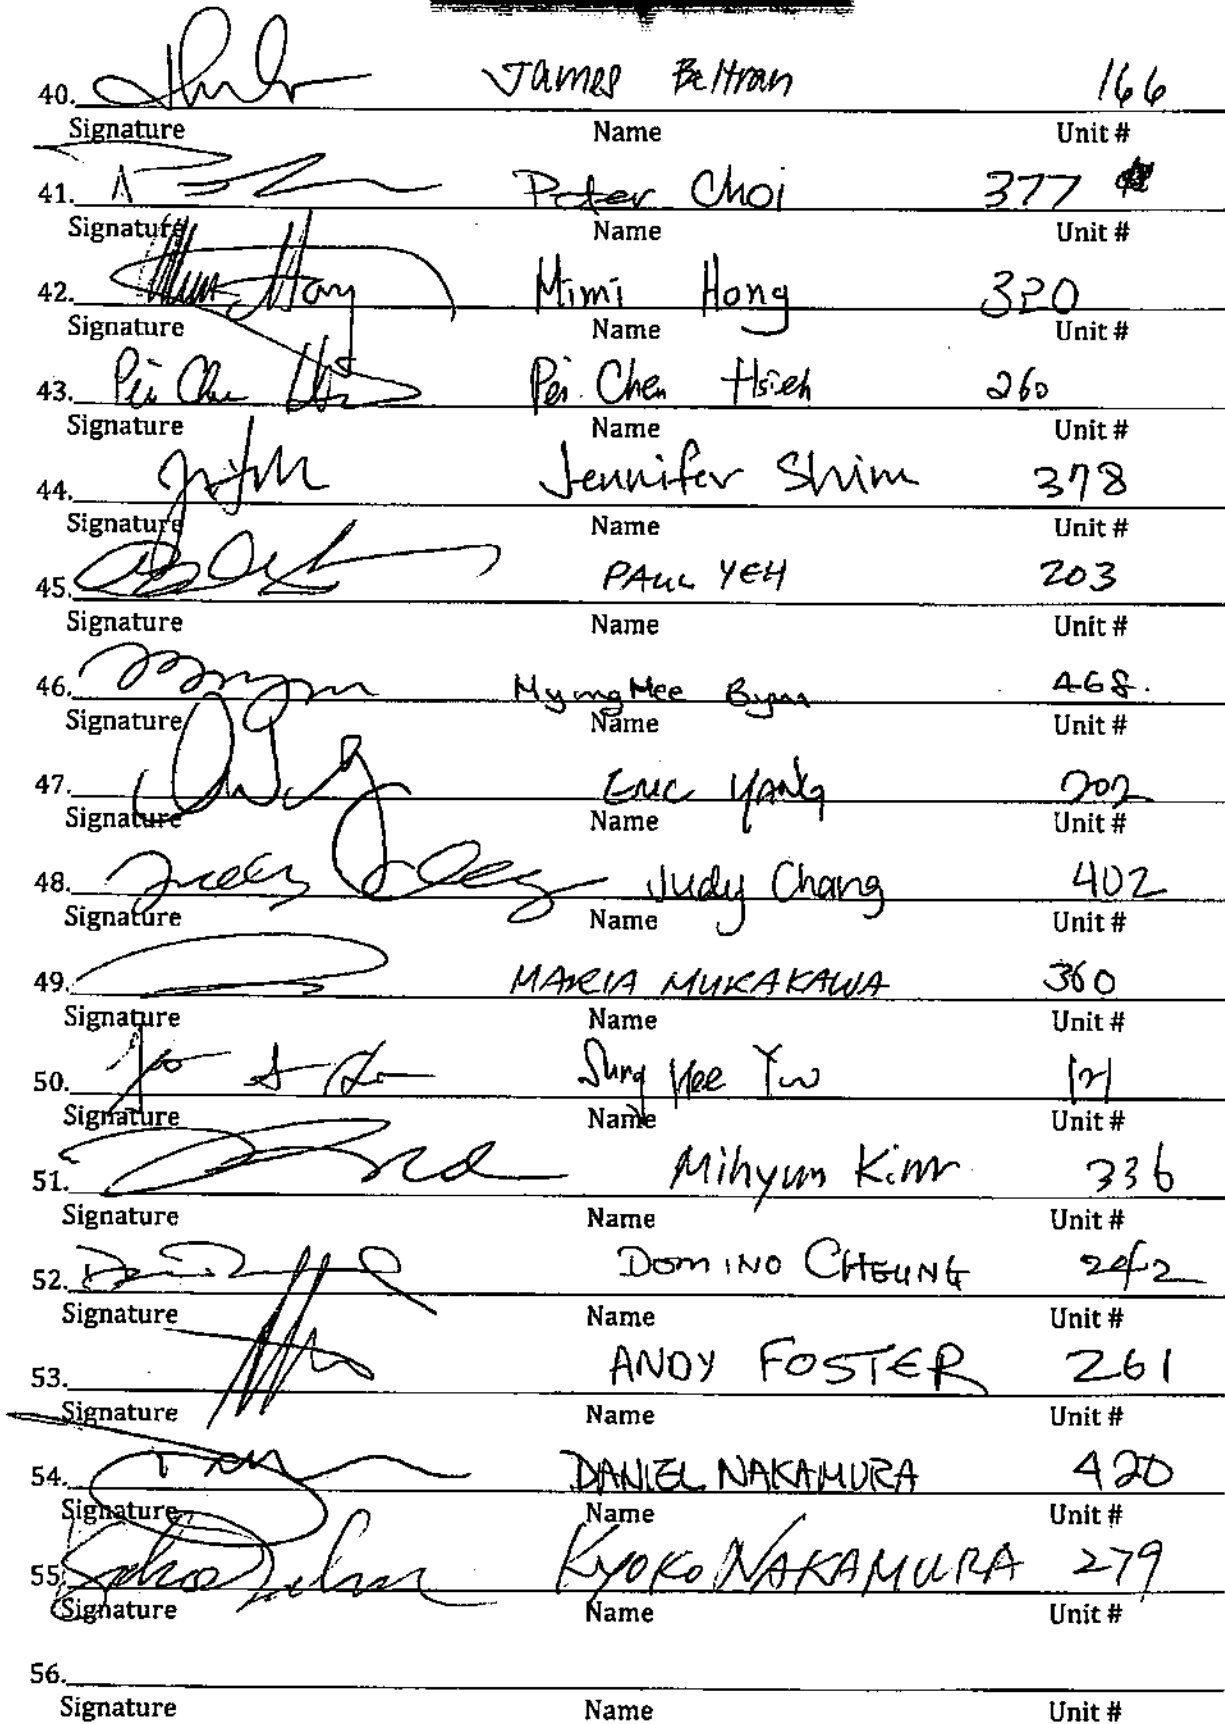 40. James Beltran 166
Signature Name Unit #
41. Peter Choi 377
Signature Name Unit #
42. Mimi Hong 320
Signature Name Unit #
43. Pei Chen Hsieh 260
Signature Name Unit #
44. Jennifer Shim 378
Signature Name Unit #
45. PAUL YEH 203
Signature Name Unit #
46. MyungHee Byun 468.
Signature Name Unit #
47. Eric YANG 202
Signature Name Unit #
48. Judy Chang 402
Signature Name Unit #
49. MARIA MUKAKAWA 360
Signature Name Unit #
50. Sung Hee Yu 121
Signature Name Unit #
51. Mihyun Kim 336
Signature Name Unit #
52. DOMINO CHEUNG 242
Signature Name Unit #
53. ANDY FOSTER 261
Signature Name Unit #
54. DANIEL NAKAMURA 420
Signature Name Unit #
55. KYOKO NAKAMURA 279
Signature Name Unit #
56.
Signature Name Unit #